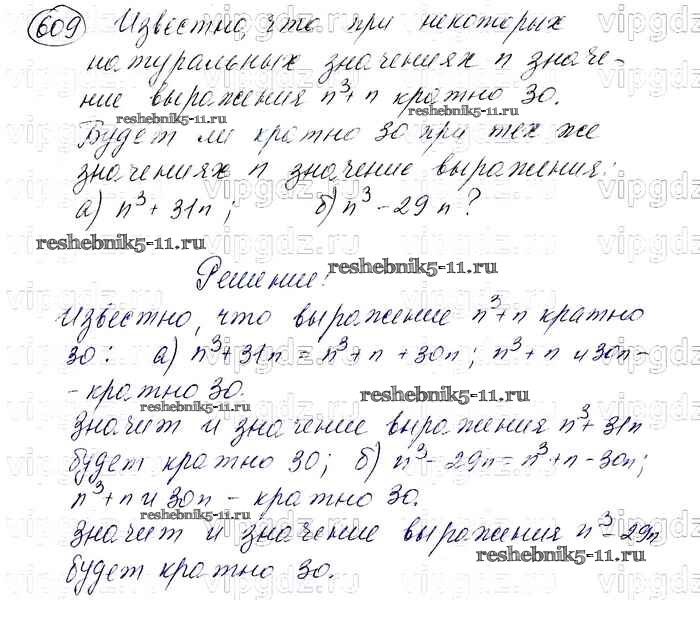 609 Известно, что при некоторых
натуральных значениях n значе-
ние выражения n³+n кратно 30.
reshebnik5-11.ru
Будет ли кратно 30 при тех же
значениях n значение выражения:
а) n³+31n; б) n³-29n?
reshebnik5-11.ru
Решение:
reshebnik5-11.ru
Известно, что выражение n³+n кратно
30: а) n³+31n = n³+n+30n; n³+n и 30n-
- кратно 30.
reshebnik5-11.ru
reshebnik5-11.ru
Значит и значение выражения n³+31n
будет кратно 30; б) n³-29n=n³+n-30n;
n³+n и 30n - кратно 30.
Значит и значение выражения n³-29n
reshebnik5-11.ru
будет кратно 30.
reshebnik5-11.ru